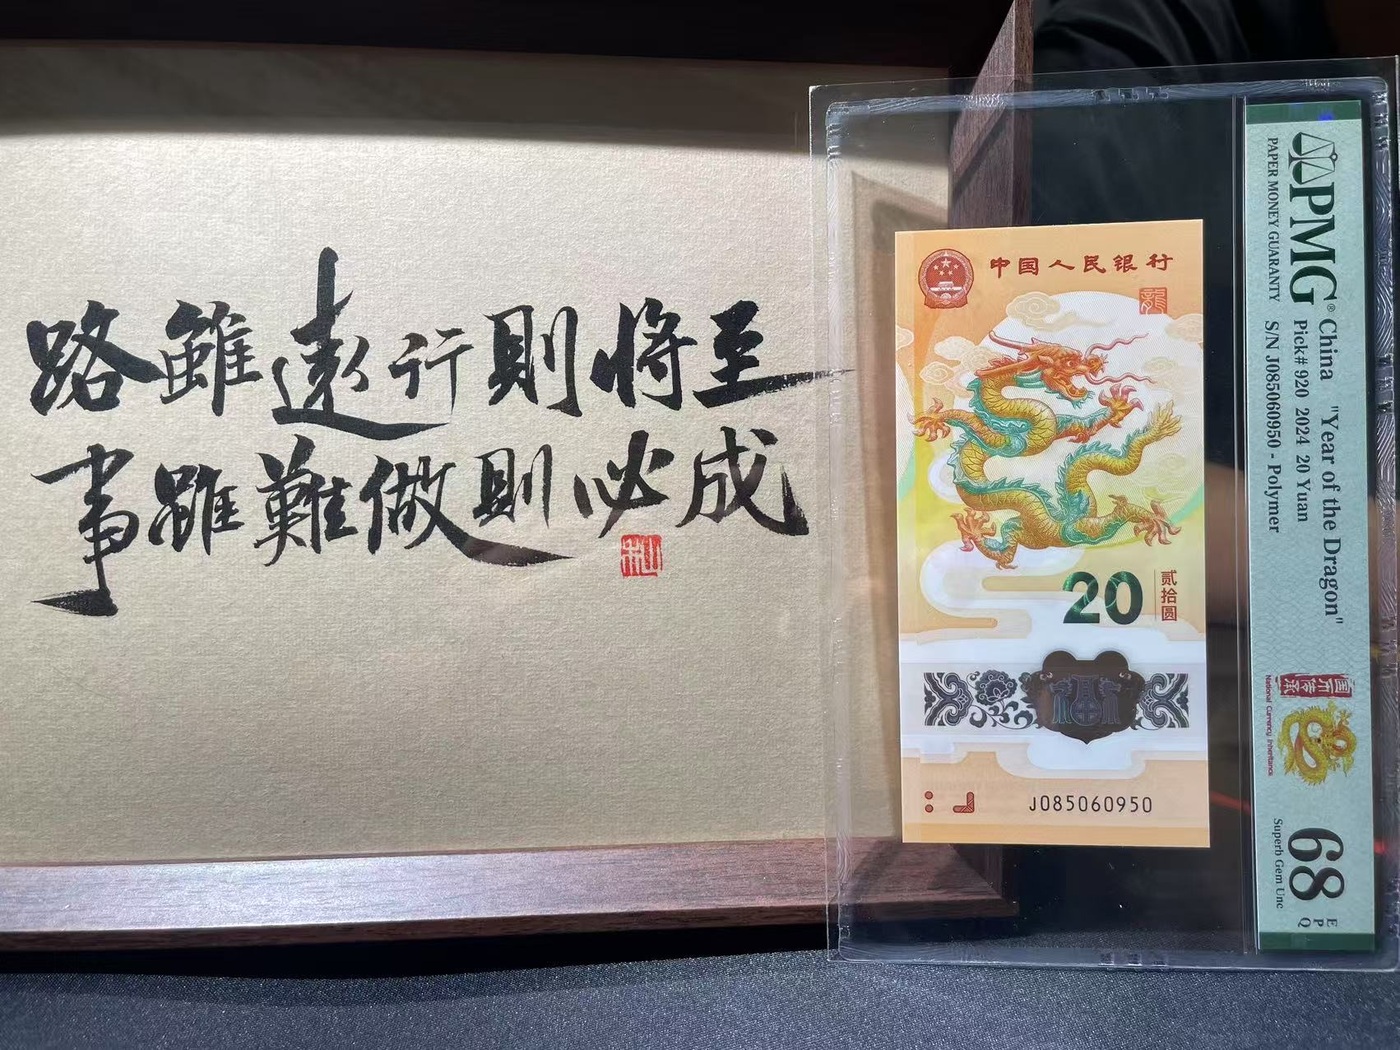 路雖遠行則將至
事雖難做則必成
中国人民银行
20
贰拾圆
福
J085060950
PMG®
PAPER MONEY GUARANTY
China "Year of the Dragon"
Pick# 920 2024 20 Yuan
S/N J085060950 - Polymer
国币传承
National Currency Inheritance
68
EPQ
Superb Gem Unc